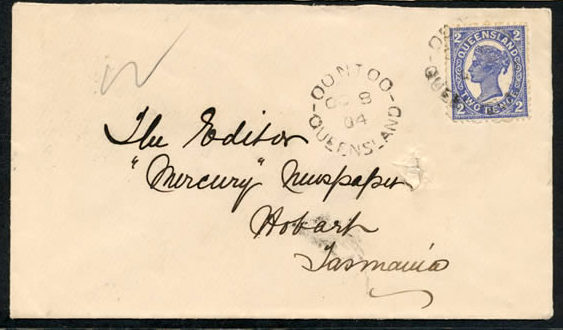 OONTOO
OC 8
04
QUEENSLAND
QUEENSLAND
2 2
TWO PENCE
2 2
The Editor
"Mercury" Newspaper
Hobart
Tasmania